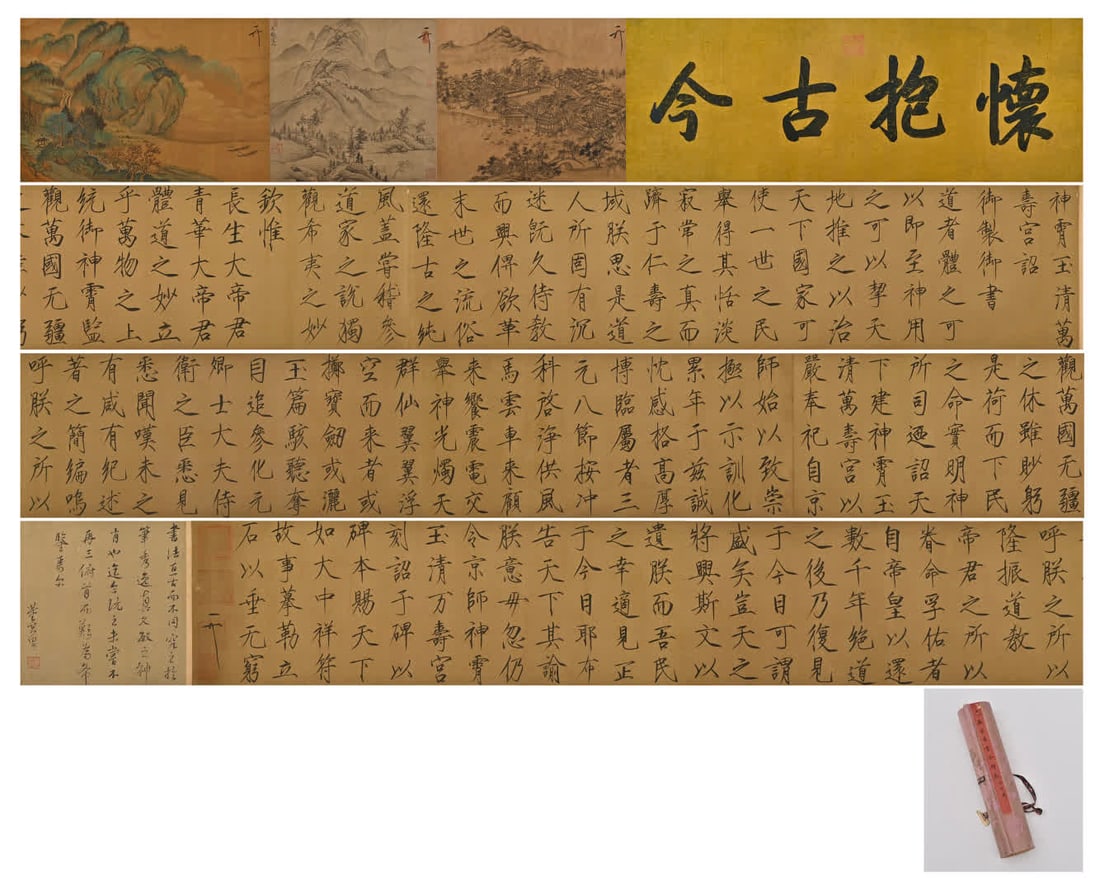 懷抱古今
神霄玉清萬
壽宮詔
御製御書
道者體之可
以即至神用
之可以挈天
地推之以治
天下國家可
使一世之民
舉得其恬淡
寂常之真而
躋于仁壽之
域朕思是道
人所固有沉
迷旣久待教
而興俾欲革
末世之流俗
還隆古之純
風蓋嘗稽參
道家之說獨
觀希夷之妙
欽惟
長生大帝君
青華大帝君
體道之妙立
乎萬物之上
統御神霄監
觀萬國无疆
觀萬國无疆
之休雖眇躬
是荷而下民
之命實明神
所司迺詔天
下建神霄玉
清萬壽宮以
嚴奉祀自京
師始以致崇
極以示訓化
累年于茲誠
忱感格高厚
博臨屬者三
元八節按冲
科啓淨供風
馬雲車來顧
來饗震電交
舉神光燭天
群仙翼翼浮
空而來者或
擲寶劒或灑
玉篇駭聽奪
目追參化元
卿士大夫侍
衛之臣悉見
悉聞嘆未之
有咸有紀述
著之簡編嗚
呼朕之所以
呼朕之所以
隆振道教
帝君之所以
眷命孚佑者
自帝皇以還
數千年絶道
之後乃復見
于今日可謂
盛矣豈天之
將興斯文以
遺朕而吾民
之幸適見正
于今日耶布
告天下其諭
朕意毋忽仍
令京師神霄
玉清万壽宮
刻詔于碑以
碑本賜天下
如大中祥符
故事摹勒立
石以垂无窮